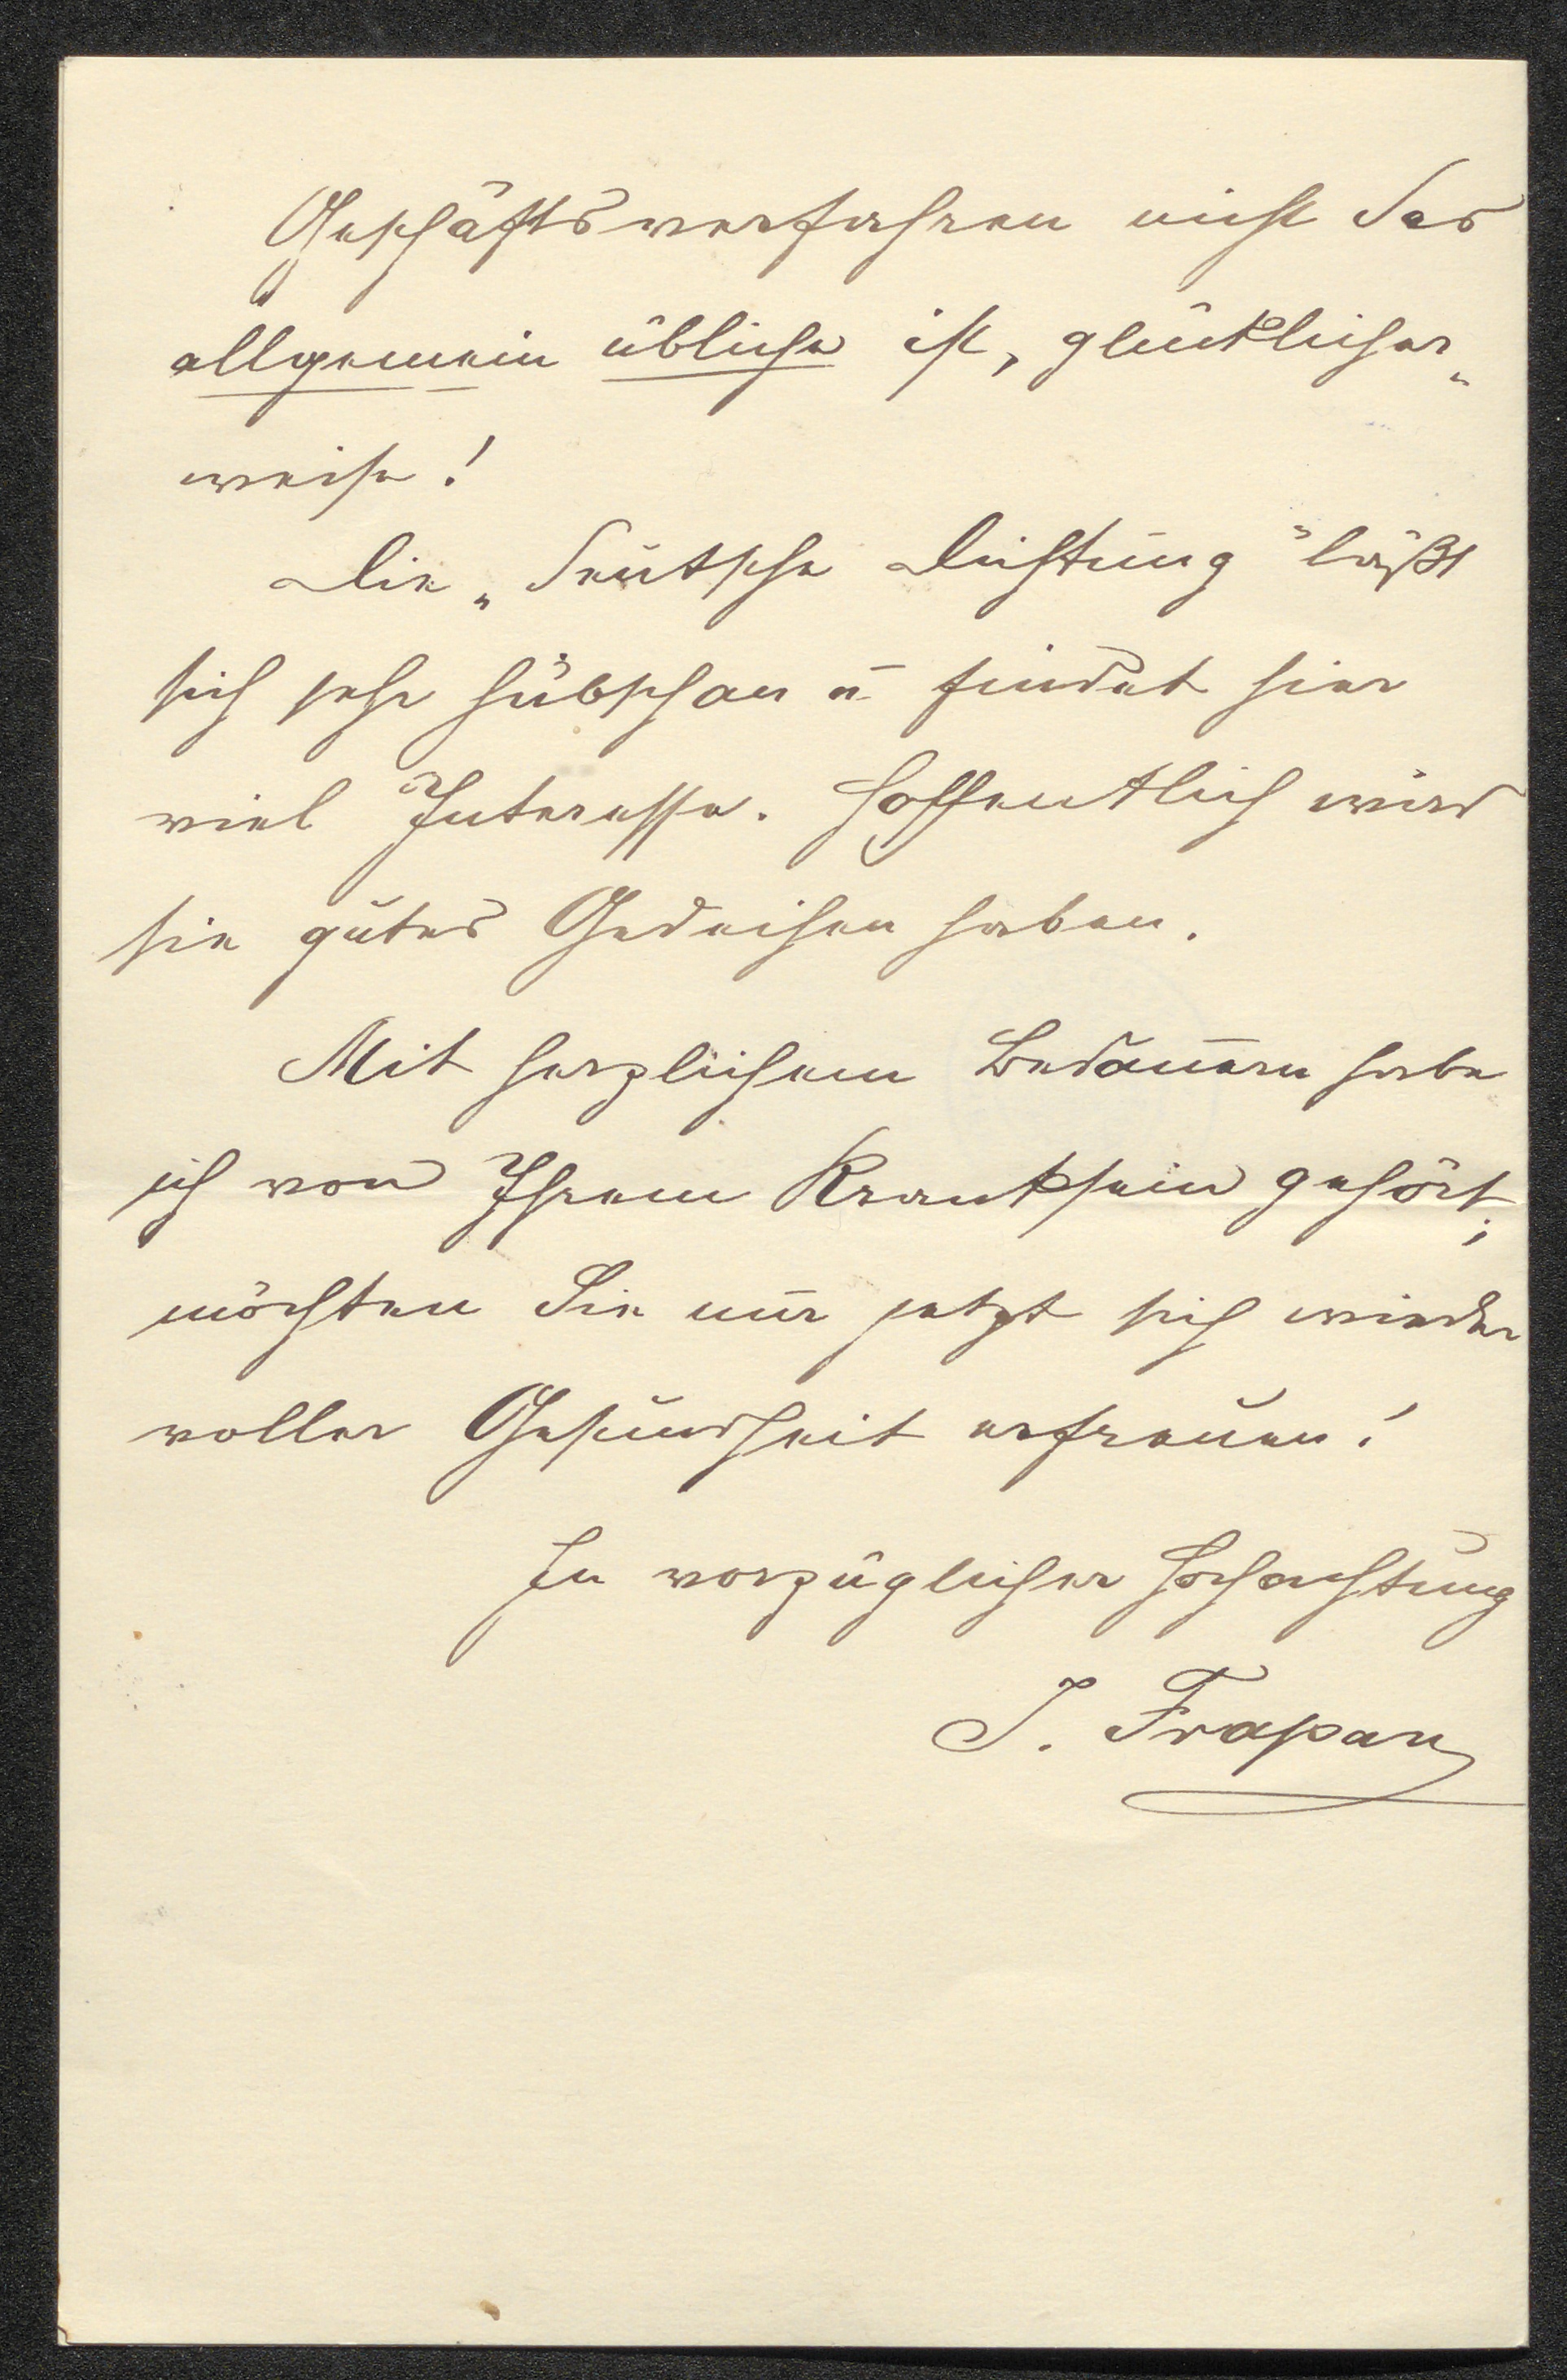 Geschäftsverfahren nicht das
allgemein übliche ist, glücklicher„
weise!
Die „deutsche Dichtung“ läßt
sich sehr hübsch an u. findet hier
viel Interesse. Hoffentlich wird
sie gutes Gedeihen haben.
Mit herzlichem Bedauern habe
ich von Ihrem Kranksein gehört;
möchten Sie nur jetzt sich wieder
voller Gesundheit erfreuen!
In vorzüglicher Hochachtung
I. Frapan